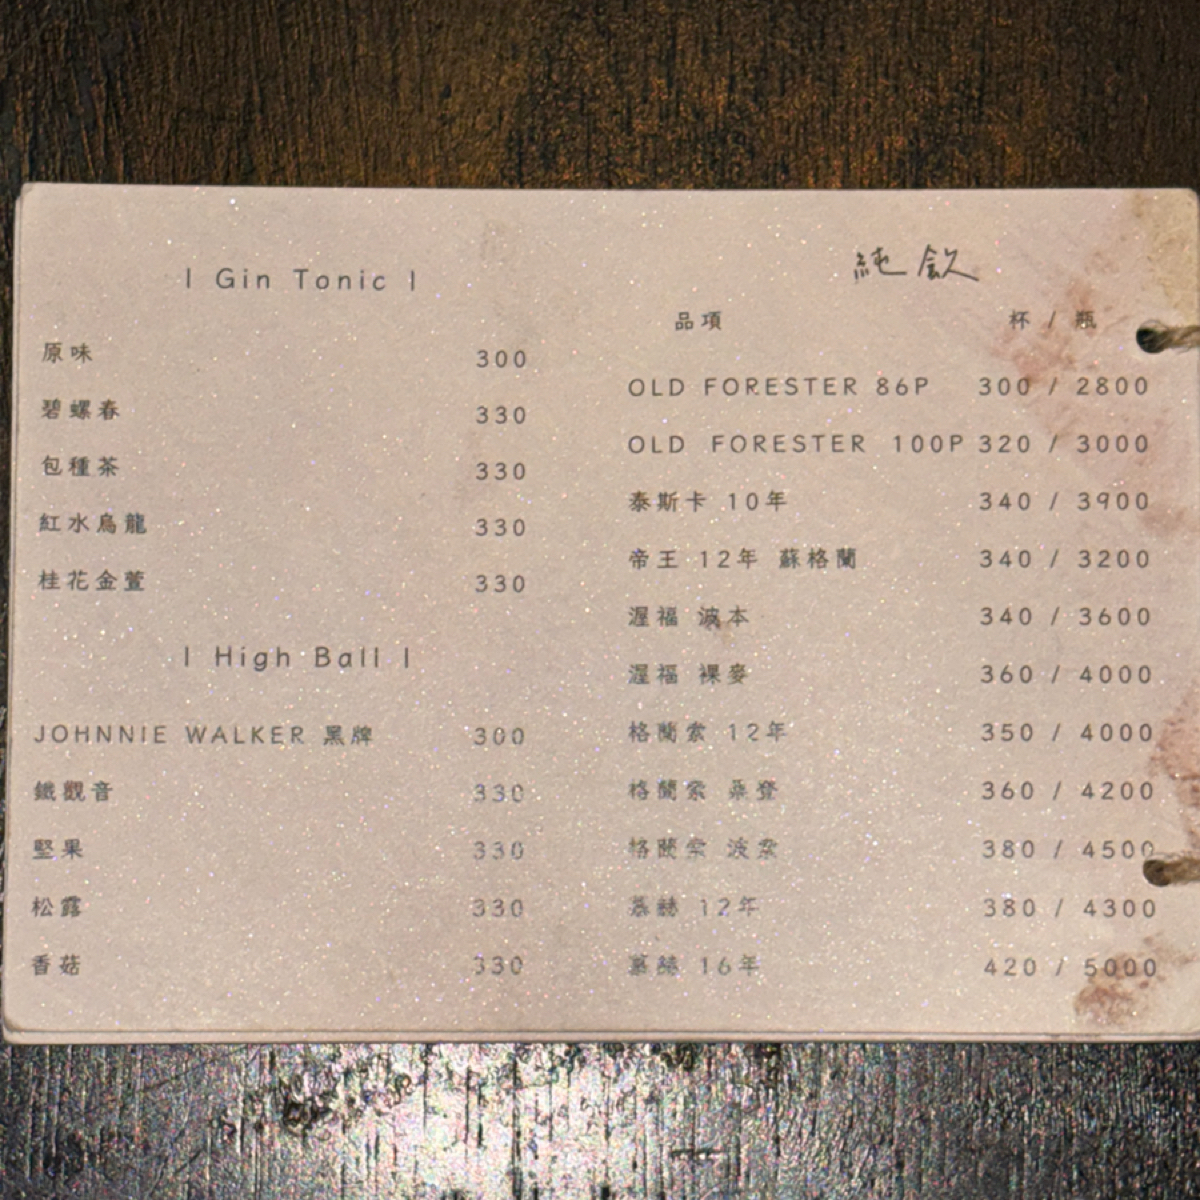 | Gin Tonic |
原味 300
碧螺春 330
包種茶 330
紅水烏龍 330
桂花金萱 330
| High Ball |
JOHNNIE WALKER 黑牌 300
鐵觀音 330
堅果 330
松露 330
香菇 330
純飲
品項 杯 / 瓶
OLD FORESTER 86P 300 / 2800
OLD FORESTER 100P 320 / 3000
泰斯卡 10年 340 / 3900
帝王 12年 蘇格蘭 340 / 3200
渥福 波本 340 / 3600
渥福 裸麥 360 / 4000
格蘭索 12年 350 / 4000
格蘭索 桑登 360 / 4200
格蘭索 波索 380 / 4500
慕赫 12年 380 / 4300
慕赫 16年 420 / 5000